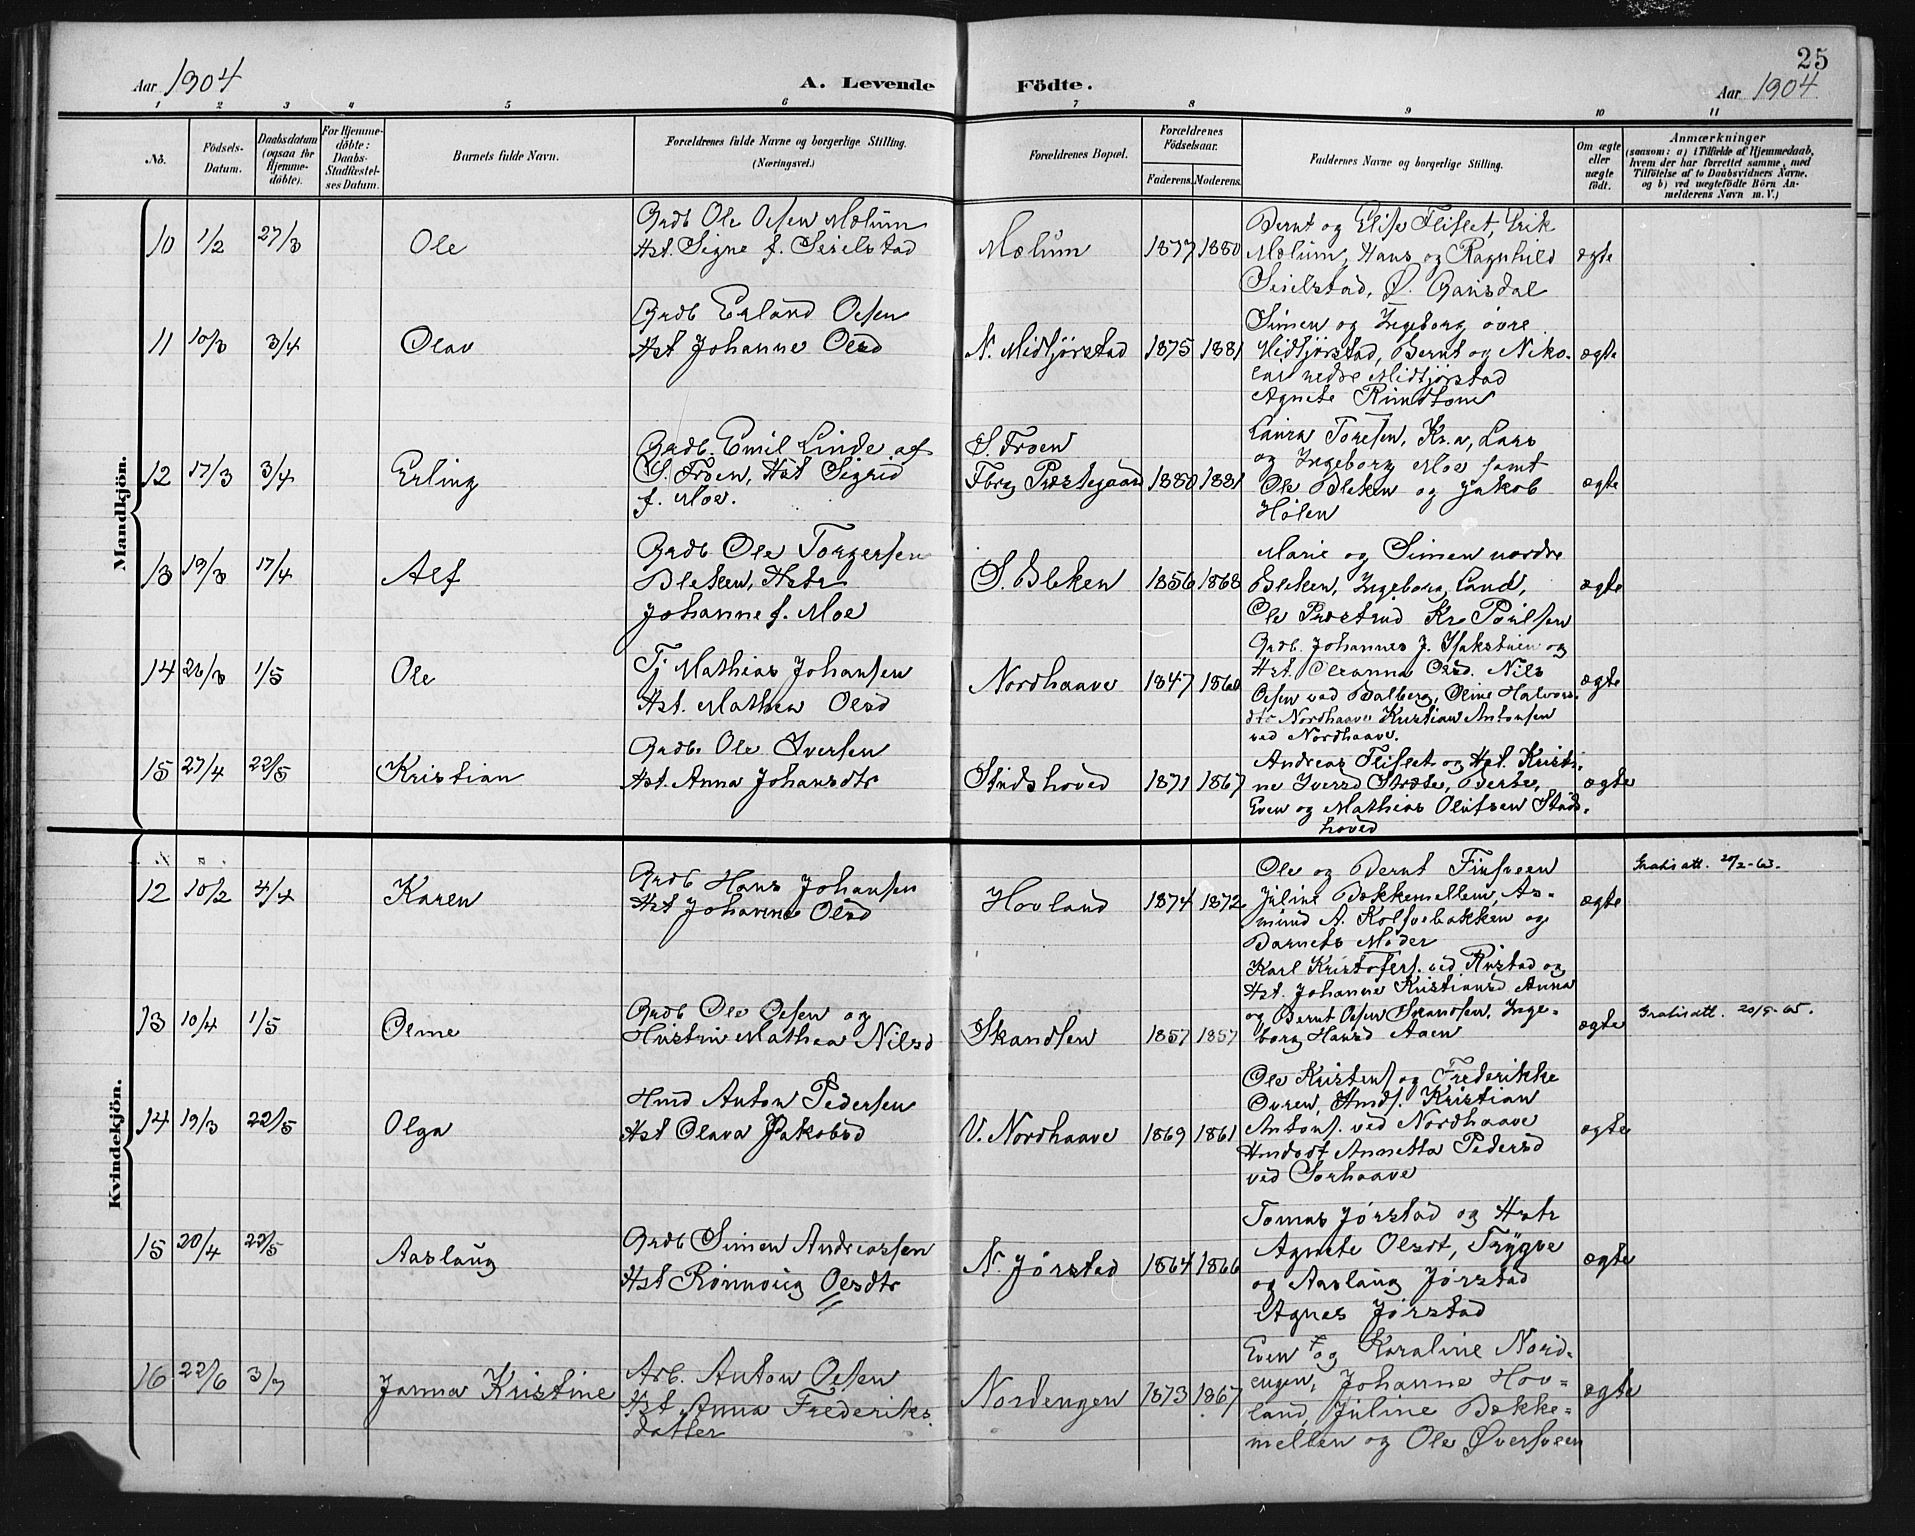 25
Aar 1904 A. Levende Födte. Aar 1904
1 2 3 4 5 6 7 8 9 10 11
No.
Födsels-
Datum.
Daabsdatum
(ogsaa for
Hjemme-
döbte).
For Hjemme-
döbte:
Daabs-
Stadfæstel-
ses Datum.
Barnets fulde Navn.
Forældrenes fulde Navne og borgerlige Stilling.
(Næringsvei.)
Forældrenes Bopæl.
Forældrenes
Födselsaar.
Faderens. Moderens.
Faddernes Navne og borgerlige Stilling.
Om ægte
eller
uægte
födt.
Anmærkninger
(saasom: a) i Tilfælde af Hjemmedaab,
hvem der har forrettet samme, med
Tilföielse af to Daabsvidners Navne.
og b) ved uægtefödte Börn An-
melderens Navn m. V.)
Mandkjön.
10 1/2 27/3 Ole
Grdb Ole Olsen Mælum
Hst. Signe f. Seielstad
Mælum 1877 1880
Bernt og Elise Fliflet, Erik
Mælum, Hans og Ragnhild
Seielstad, Ø. Gausdal
ægte
11 10/3 3/4 Olav
Grdb Erland Olsen
Hst Johanne Olsd
N. Midtjørstad 1875 1881
Simen og Ingeborg øvre
Midtjørstad, Bernt og Niko-
lai nedre Midtjørstad
Agnete
ægte
12 17/3 3/4 Erling
Grdb. Emil Linde af
S. Froen, Hst Sigrid
f. Moe.
S. Froen
Fbrg Præstegaard 1880 1881
Laura Toresen, Kr.a, Lars
og Ingeborg Moe samt
Ole Bleken og Jakob
Holen
ægte
13 19/3 17/4 Alf
Grdb. Ole Torgersen
Bleken, Hstr
Johanne f. Moe
S. Bleken 1856 1868
Marie og Simen nordre
Bleken, Ingeborg Land,
Ole Præstrud Kr. Poulsen
ægte
14 1/5 Ole
Tj Mathias Johansen
Hst. Mathea Olsd
Nordhaave 1847 1860
Grdb. Johannes J. og
Hst. Oleanna Olsd. Nils
Olsen ved Balberg, Oline Halvors-
dtr Nordhaave Kristian Antonsen
ved Nordhaave.
ægte
15 27/4 22/5 Kristian
Grdb. Ole Iversen
Hst. Anna Johansdtr
Studshoved 1871 1867
Andreas Fliflet og Hst. Kristi-
ne Iversd Stræte, Berte,
Even og Mathias Olufsen Studs-
hoved
ægte
Kvindekjön.
12 10/2 4/4 Karen
Grdb Hans Johansen
Hst Johanne Olsd
Hovland 1874 1872
Ole og Bernt Finsveen
Juline Bækkemellem, As-
mund A. Kolsvebakken og
Barnets Moder
ægte
Gratis att. 20/2-63.
13 10/4 1/5 Oline
Grdb Ole Olsen og
Hustru Mathea Nilsd
Skandsen 1857 1857
Karl Kristofers. ved Rustad og
Hst. Johanne Kristiansd Anna
og Bernt Olsen Skandsen, Inge-
borg Hansd Aaen
ægte
Gratis att. 20/5-65.
14 19/3 22/5 Olga
Hmd Anton Pedersen
Hst Olava Jakobsd
V. Nordhaave 1869 1861
Ole Kristens. og Frederikke
Øvren, Hmds. Kristian
Antons. ved Nordhaave
Annetta Pedersd
ved Sorhaave
ægte
15 20/4 22/5 Aaslaug
Grdb Simen Andreassen
Hst Rønnoug Olsdtr
N. Jørstad 1864 1866
Tomas Jørstad og Hstr
Agnete Olsdt, Trygve
og Aaslaug Jørstad
Agnes Jørstad
ægte
16 22/6 3/7 Janna Kristine
Arb. Anton Olsen
Hst Anna Frederiks-
datter
Nordengen 1873 1867
Even og Karoline Nord-
engen, Johanne Hov-
land, Juline Bække-
mellem og Ole Øversveen
ægte